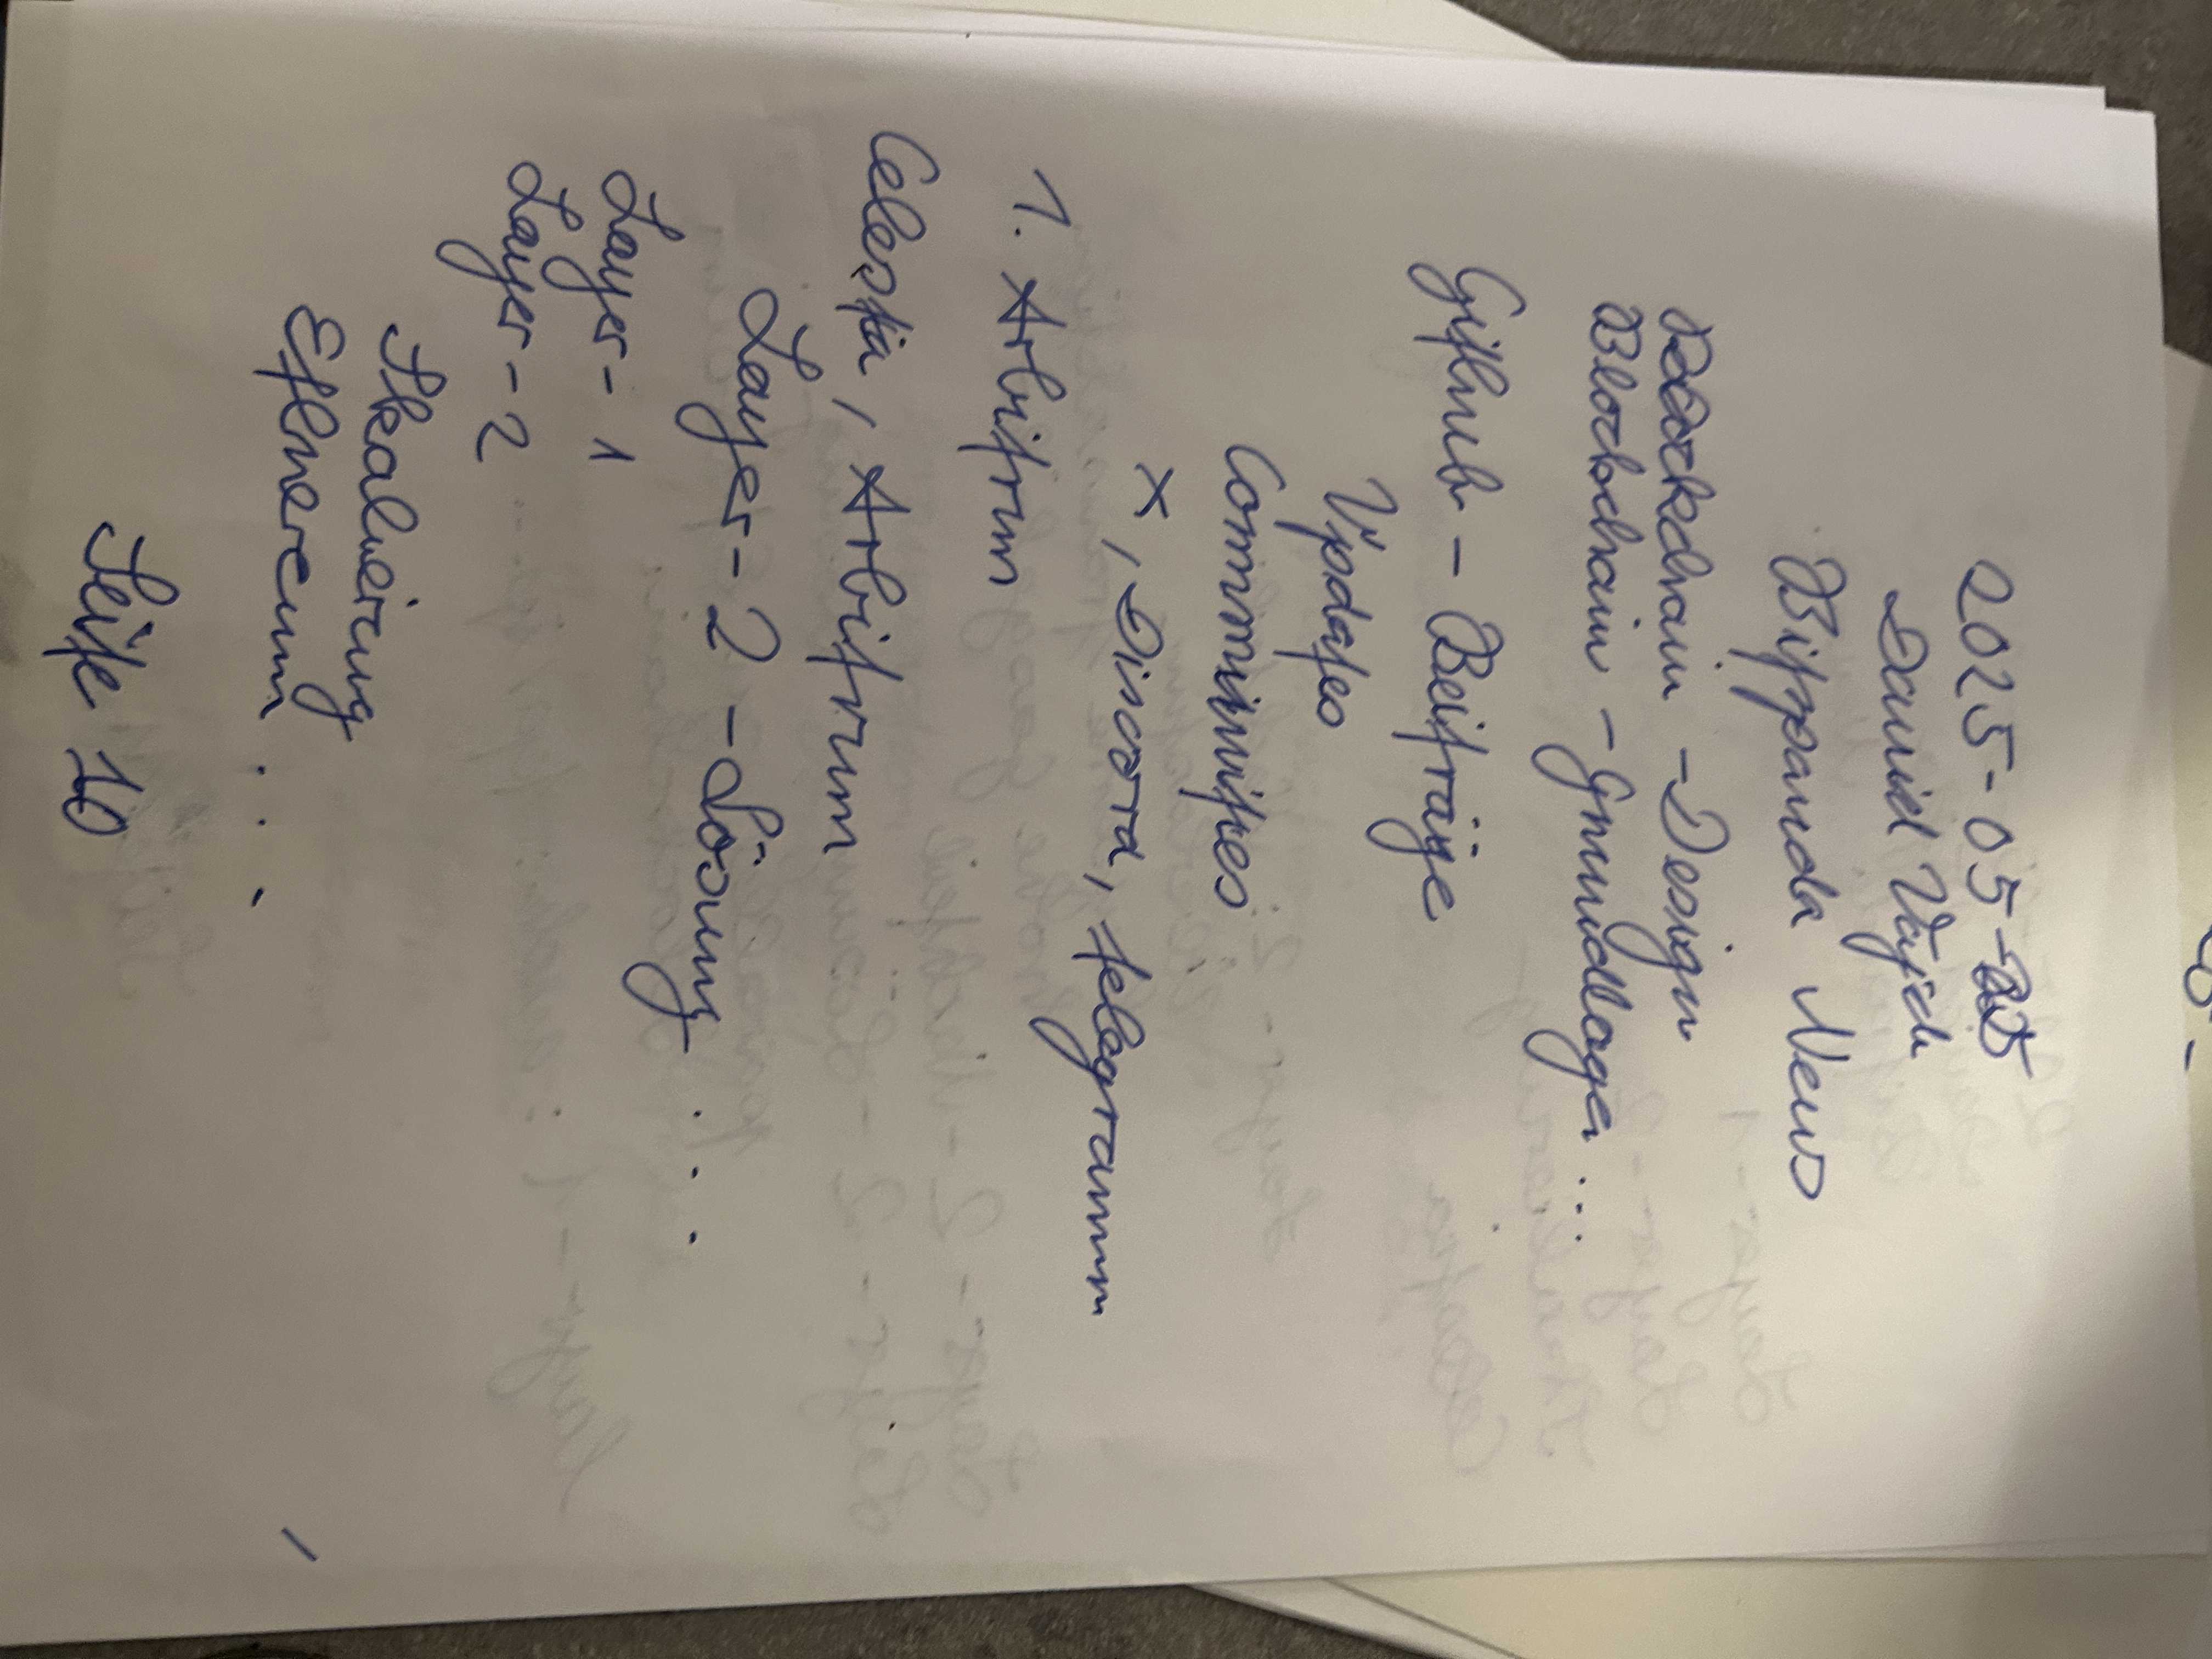 2025-05-25
Daniel Vajch
Bitpanda News
Blockchain - Design
Blockchain - Grundlage ...
Github - Beiträge
Updates
Communities
X, Discord, telegramm
1. Arbitrum
Celestia, Arbitrum
Layer-2 - Lösung ...
Layer-1
Layer-2
Skalierung
Ethereum ...
Seite 10